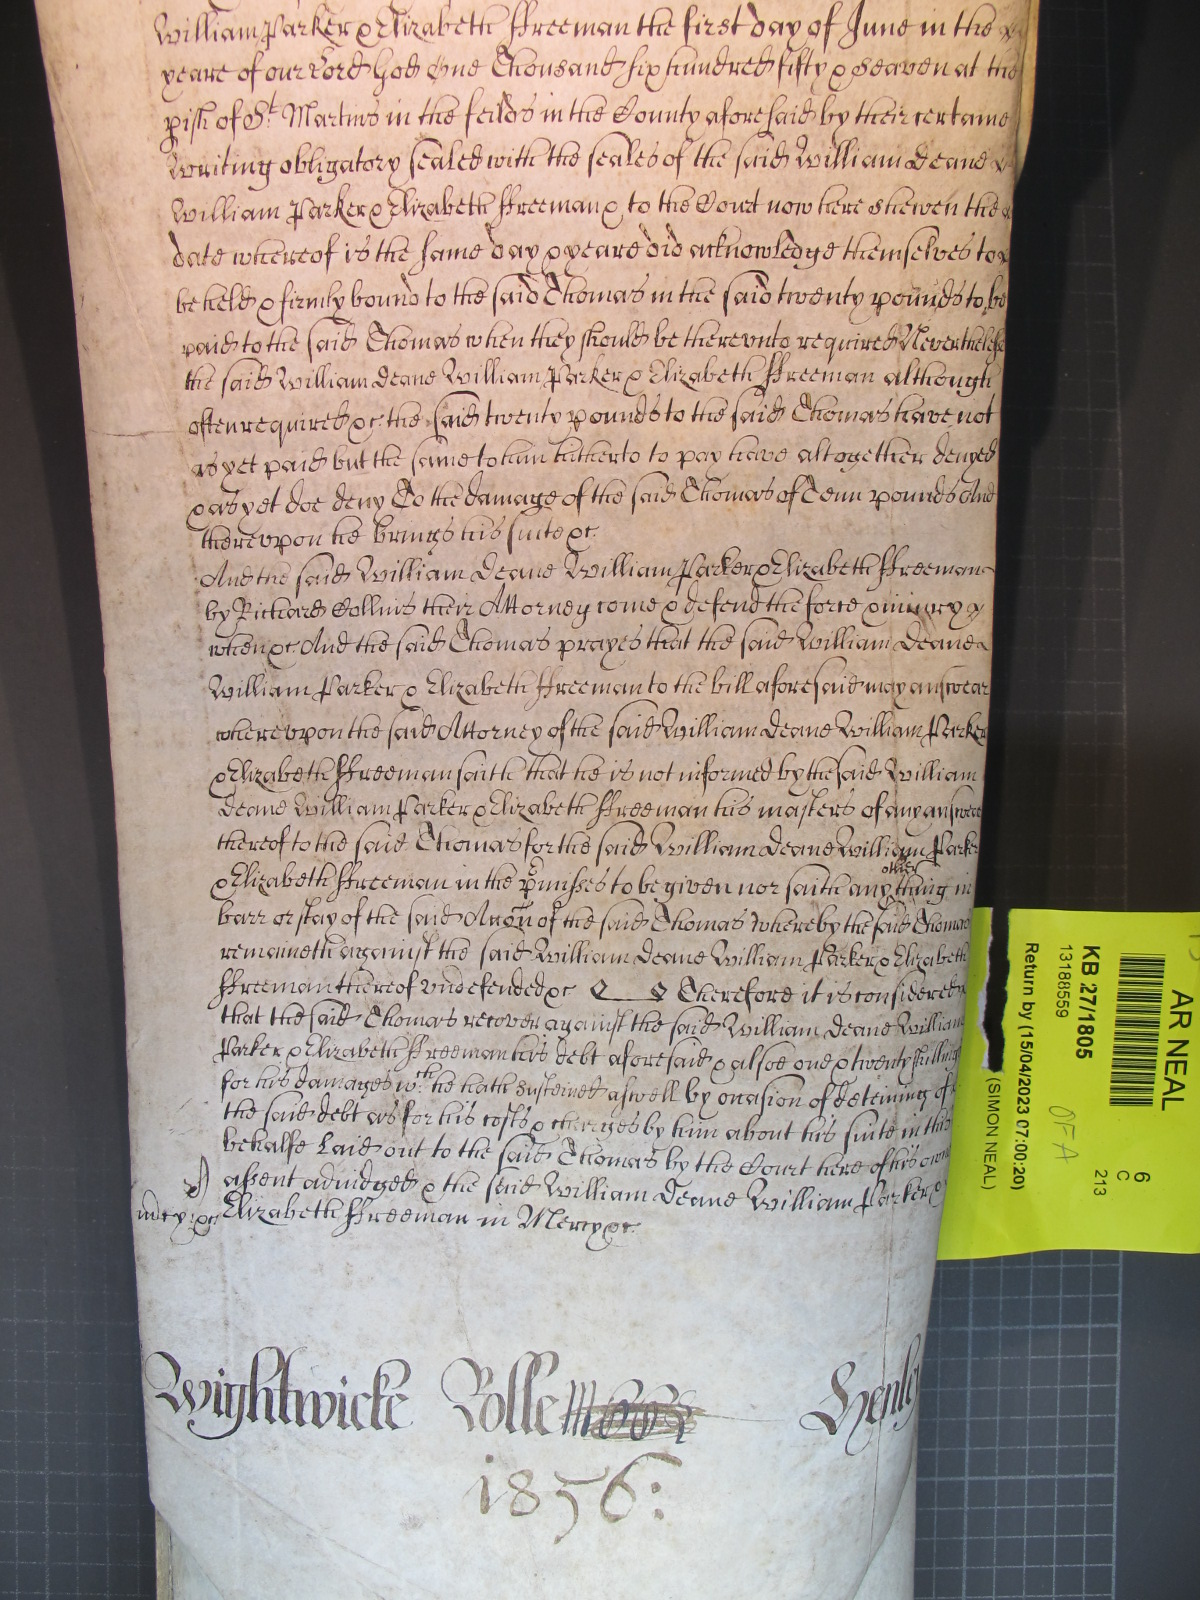 William Parker & Elizabeth Ffreeman the first day of June in the
yeare of our Lord God One Thousand six hundred fifty & seaven at the
pish of St Martins in the feilds in the County aforesaid by their certaine
Writing obligatory sealed with the seales of the said William Deane &
William Parker & Elizabeth Ffreeman & to the Court now here shewen the
date whereof is the same day & yeare did acknowledge themselves to
be held & firmly bound to the said Thomas in the said twenty pounds to be
paid to the said Thomas when they should be therevnto required Neverthelesse
the said William Deane William Parker & Elizabeth Ffreeman although
often required &c. the said twenty pounds to the said Thomas have not
as yet paid but the same to him hitherto to pay have altogether denyed
& as yet doe deny To the damage of the said Thomas of Tenn pounds And
therevpon he brings his suite &c.
And the said William Deane William Parker & Elizabeth Ffreeman
by Richard Collins their Attorney come & defend the force & iniury
when &c And the said Thomas prayes that the said William Deane
William Parker & Elizabeth Ffreeman to the bill aforesaid may answear
wherevpon the said Attorney of the said William Deane William Parker
& Elizabeth Ffreeman saith that he is not informed by the said William
Deane William Parker & Elizabeth Ffreeman his masters of any answere
thereof to the said Thomas for the said William Deane William Parker
& Elizabeth Ffreeman in the pmisses to be given nor saith any other thing in
barr or stay of the said Accon of the said Thomas Whereby the said Thomas
remaineth against the said William Deane William Parker & Elizabeth
Ffreeman thereof vndefended &c Therefore it is considered
that the said Thomas recover against the said William Deane William
Parker & Elizabeth Ffreeman his debt aforesaid & alsoe one & twenty shillings
for his damages wch he hath susteined aswell by occasion of deteining of
the said debt as for his costs & charges by him about his suite in this
behalfe Laid out to the said Thomas by the Court here of his owne
assent adiudged & the said William Deane William Parker &
Elizabeth Ffreeman in Mercy &c.
Wightwicke Rolle Henley
1856:
AR NEAL
KB 27/1805
13188559
6
C
213
Return by (15/04/2023 07:00:20)
(SIMON NEAL)